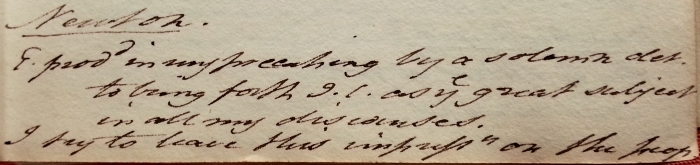 Newton.
I. prodd in my preaching by a solemn det.
to bring forth J. C. as ye great subject
in all my discourses.
I try to leave this impressn on the peop